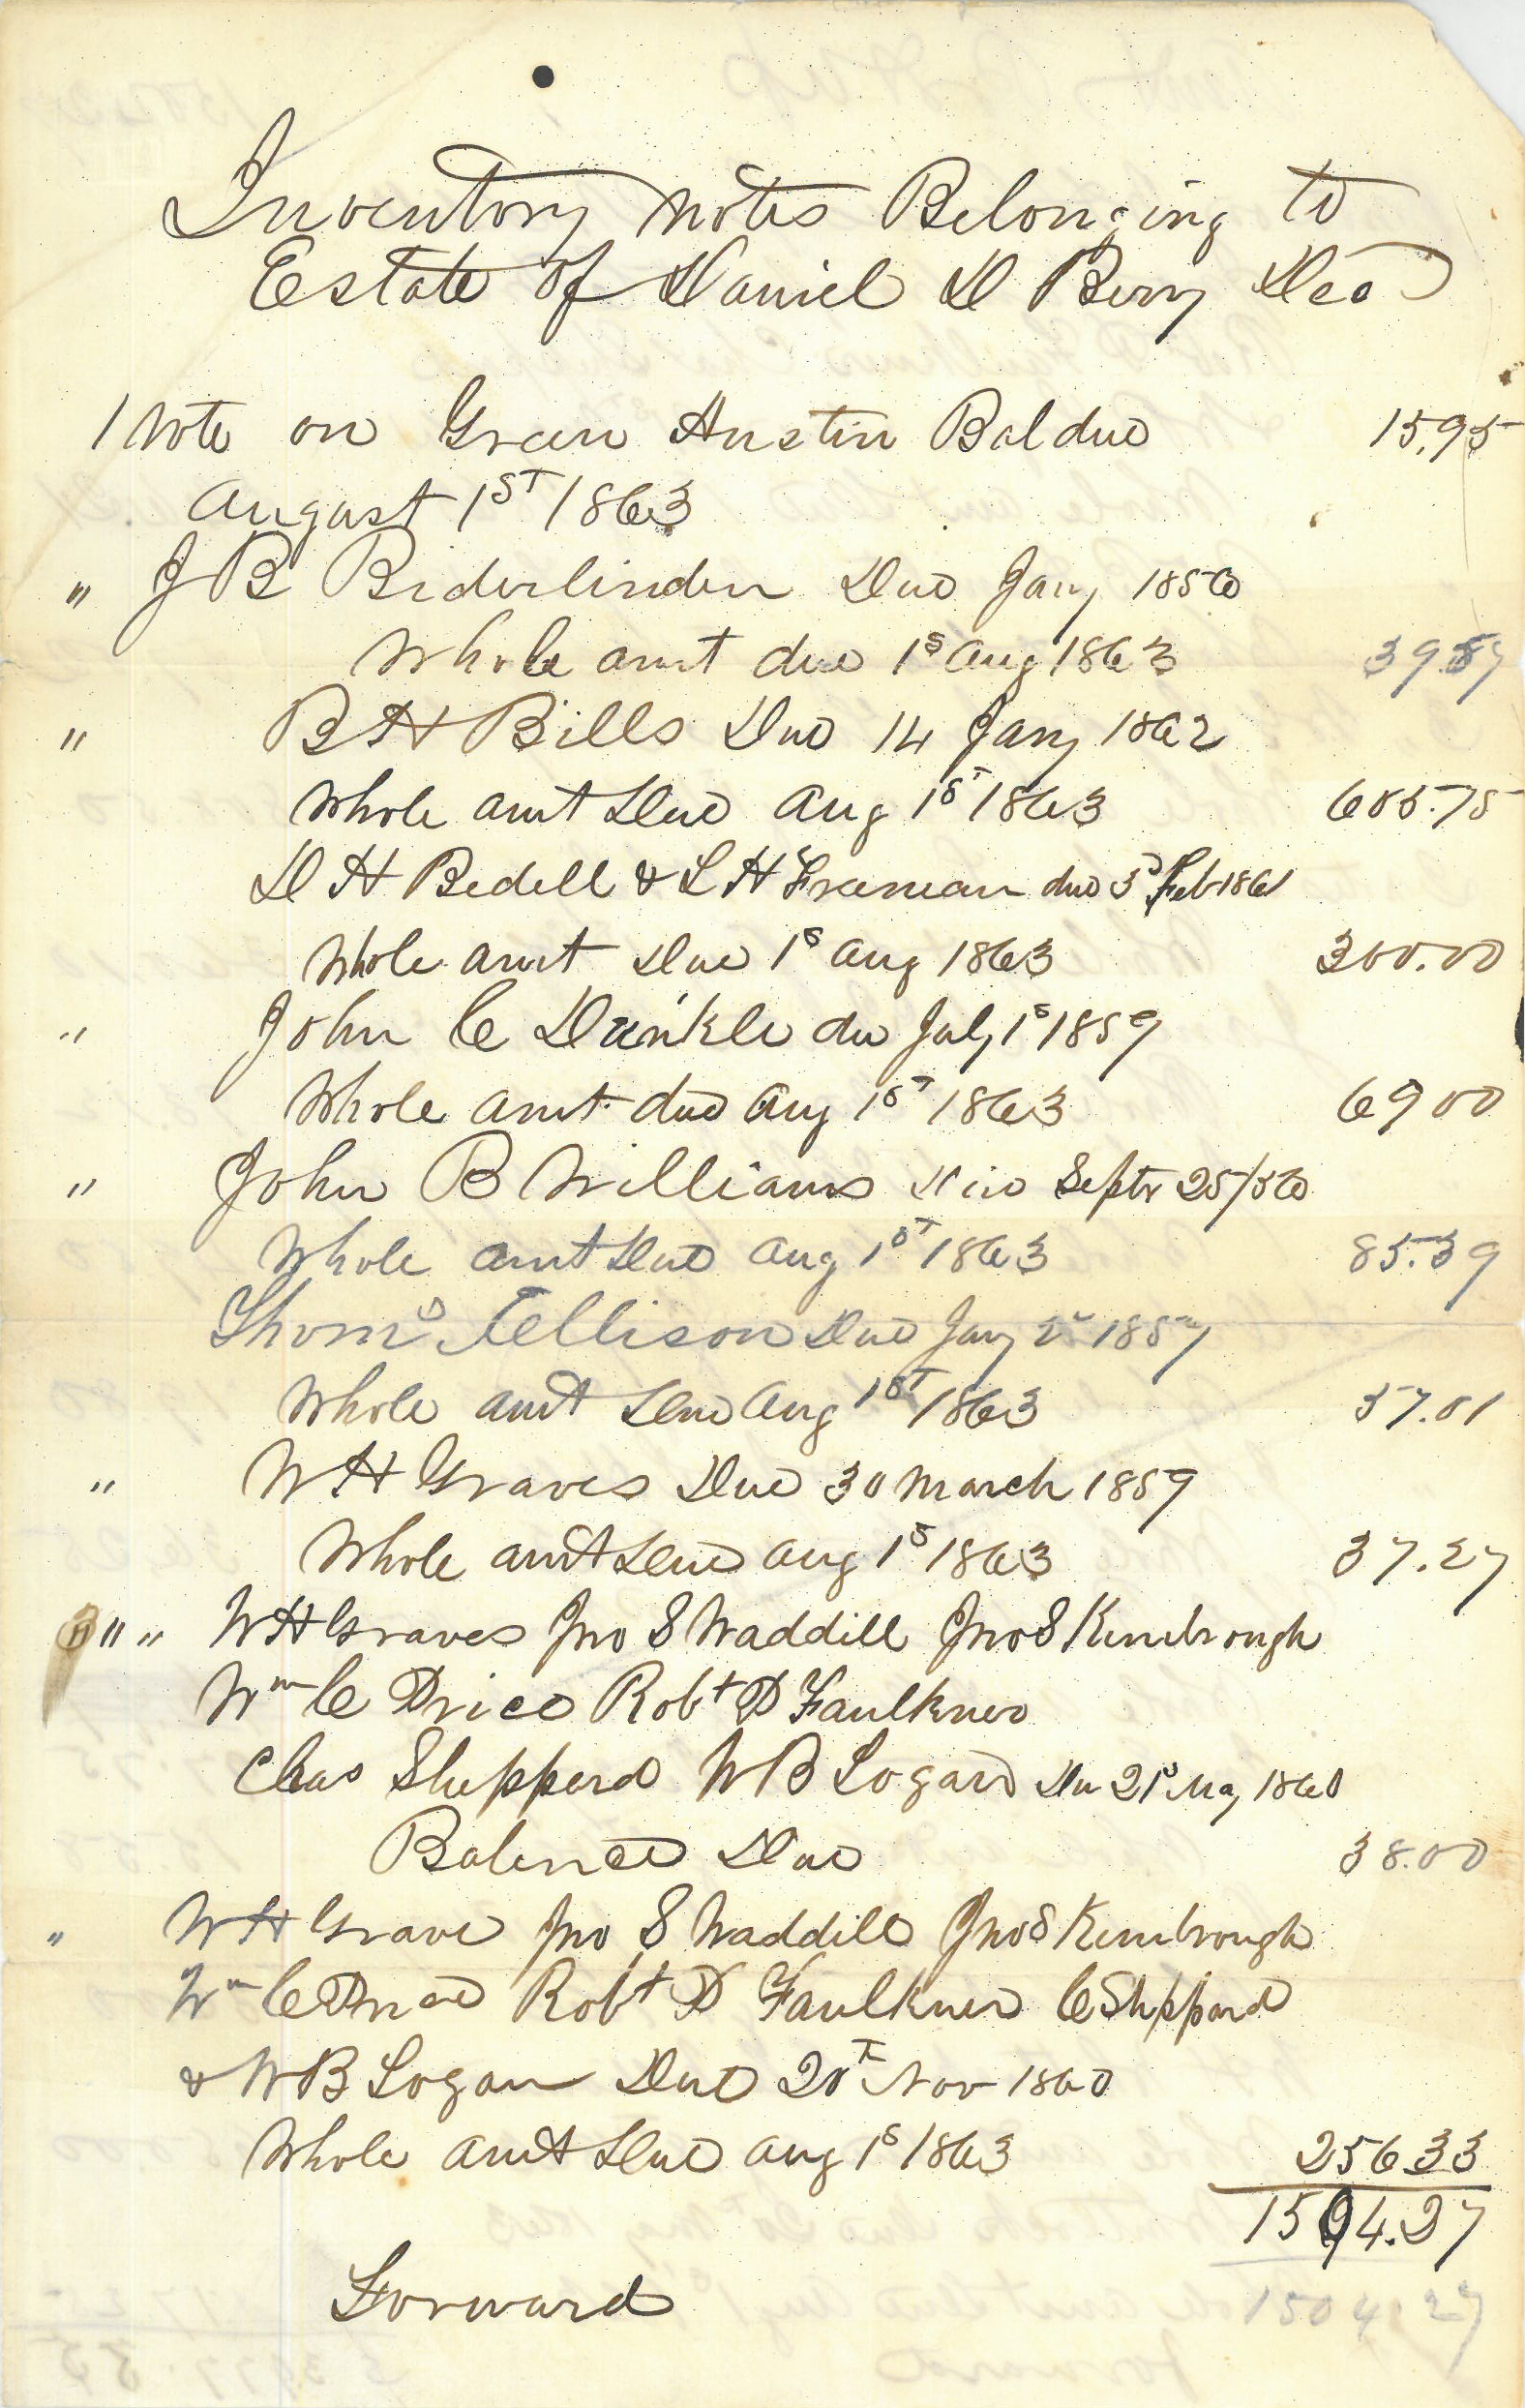 Inventory Notes Belonging to
Estate of Daniel D Berry Decd
1 Note on Green Austin Bal due 15.95
August 1ST 1863
" J B Biderlinden Due Jany 1856
Whole amt due 1s Aug 1863 39.57
" B H Bills Due 14 Jany 1862
Whole amt Due Aug 1ST 1863 655.75
D H Bedell & L H Freeman due 3d Feb 1861
Whole amt Due 1s Aug 1863 300.00
" John C Dunkle du July 1s 1859
Whole amt due Aug 1ST 1863 69 00
" John B Williams Due Septr 25/56
Whole amt Due Aug 1ST 1863 85.39
Thoms Tellison Due Jany 1857
Whole amt Due Aug 1ST 1863 57.01
" W H Graves Due 30 March 1859
Whole amt Due Aug 1s 1863 37.27
" " W H Graves Jno S Waddill Jno S Kimbrough
Wm C Price Robt P Faulkner
Chas Shepperd W B Logan Du 21s May 1860
Balence Due 38.00
" W H Grave Jno S Waddill Jno S Kimbrough
Wm C Price Robt P Faulkner C Sheppard
& W B Logan Due 20th Nov 1860
Whole amt Due Aug 1s 1863 256 33
1594.27
Forward 1504.27